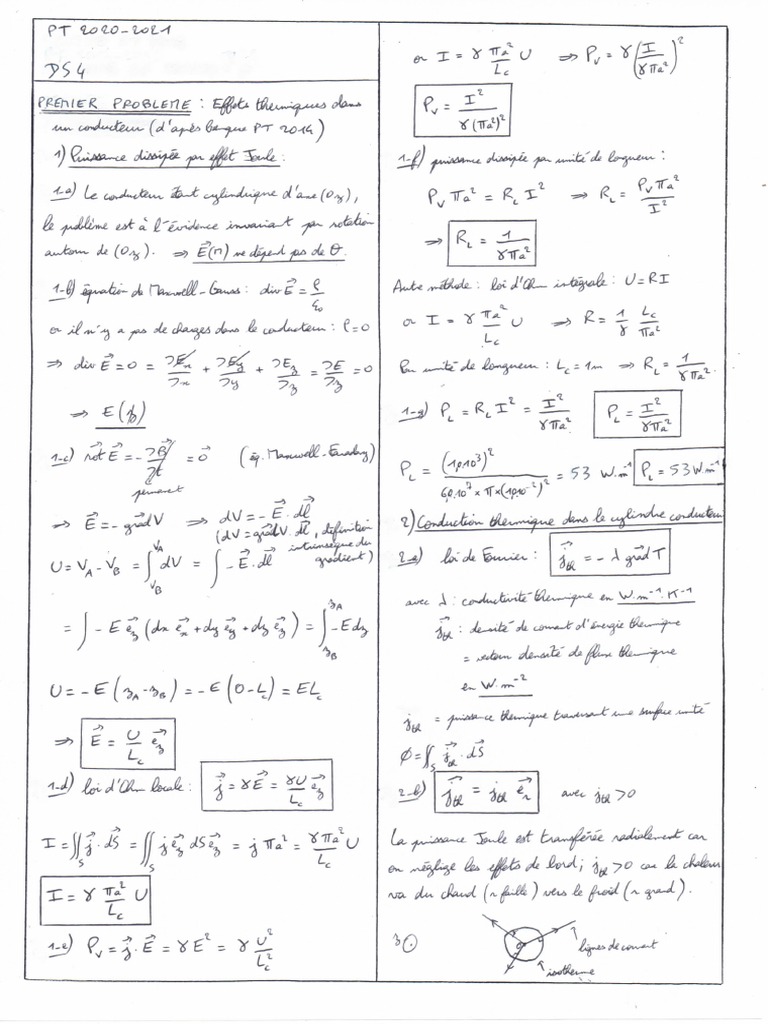 PT 2020-2021
DS4
PREMIER PROBLEME : Effets thermiques dans
un conducteur (d'après banque PT 2014)
1) Puissance dissipée par effet Joule :
1-a) Le conducteur étant cylindrique d'axe (Oz),
le problème est à l'évidence invariant par rotation
autour de (Oz). ⇒ E⃗(M) ne dépend pas de θ.
1-b) équation de Maxwell-Gauss : div E⃗ = ρ/ε₀
or il n'y a pas de charges dans le conducteur : ρ=0
⇒ div E⃗ = 0 = ∂Eₓ/∂x + ∂E_y/∂y + ∂E_z/∂z = ∂E/∂z = 0
⇒ E(z)
1-c) rot⃗ E⃗ = -∂B⃗/∂t = 0⃗ (éq. Maxwell-Faraday)
permanent
⇒ E⃗ = -grad⃗ V ⇒ dV = -E⃗·dl⃗
(dV = grad⃗V·dl⃗, définition
intrinsèque du
gradient)
U = V_A - V_B = ∫_{V_B}^{V_A} dV = ∫ -E⃗·dl⃗
= ∫ -E e⃗_z (dx e⃗_x + dy e⃗_y + dz e⃗_z) = ∫_{z_B}^{z_A} -E dz
U = -E (z_A - z_B) = -E (0 - L_c) = E L_c
⇒ E⃗ = U/L_c e⃗_z
1-d) loi d'Ohm locale : j⃗ = γE⃗ = γU/L_c e⃗_z
I = ∬_S j⃗·dS⃗ = ∬_S j e⃗_z dS e⃗_z = j πa² = γπa²/L_c U
I = γ πa²/L_c U
1-e) P_v = j⃗·E⃗ = γE² = γ U²/L_c²
or I = γ πa²/L_c U ⇒ P_v = γ (I/γπa²)²
P_v = I²/γ(πa²)²
1-f) puissance dissipée par unité de longueur :
P_v πa² = R_L I² ⇒ R_L = P_v πa²/I²
⇒ R_L = 1/γπa²
Autre méthode : loi d'Ohm intégrale : U = RI
or I = γ πa²/L_c U ⇒ R = 1/γ L_c/πa²
Par unité de longueur : L_c = 1m ⇒ R_L = 1/γπa².
1-g) P_L = R_L I² = I²/γπa². P_L = I²/γπa²
P_L = (1,0.10³)²/6,0.10⁷×π×(1,0.10⁻²)² = 53 W.m⁻¹ P_L = 53 W.m⁻¹
2) Conduction thermique dans le cylindre conducteur
2-a) loi de Fourier : j⃗_th = -λ grad⃗ T
avec λ : conductivité thermique en W.m⁻¹.K⁻¹
j⃗_th : densité de courant d'énergie thermique
= vecteur densité de flux thermique
en W.m⁻²
j_th = puissance thermique traversant une surface unité
ϕ = ∬_S j⃗_th·dS⃗
2-b) j⃗_th = j_th e⃗_r avec j_th > 0
La puissance Joule est transférée radialement car
on néglige les effets de bord ; j_th > 0 car la chaleur
va du chaud (r faible) vers le froid (r grand).
z⊙
lignes de courant
isotherme